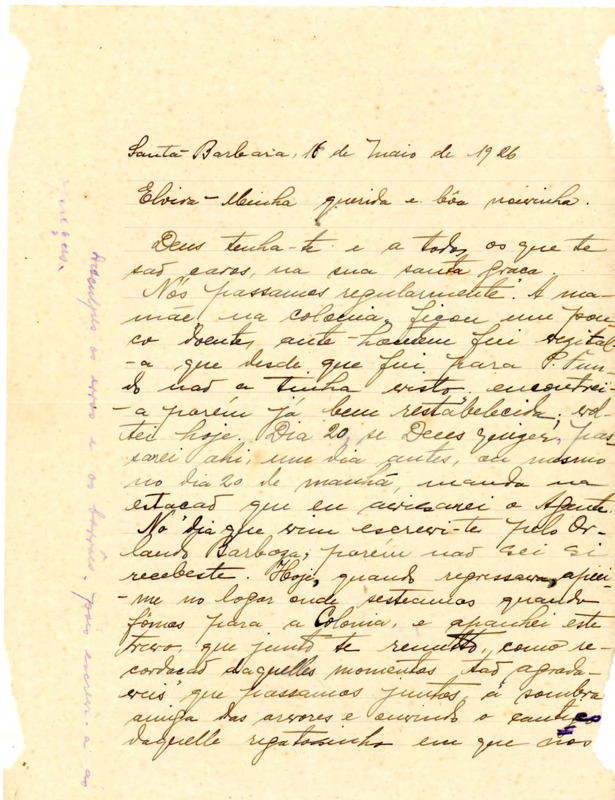 Santa Barbara, 16 de Maio de 1926
Elvira - Minha querida e bôa noivinha.
Deus tenha-te e a todos os que te
são caros, na sua santa graca.
Nós passamos regularmente. A ma-
mae na colonia, ficou um pou-
co doente, ante-hontem fui visital-
-a que desde que fui para P. Fun-
do naõ a tinha visto, encontrei-
-a porém já bem restabelecida, vol-
tei hoje. Dia 20, se Deus quizer, pas-
sarei ahi, um dia antes, ou mesmo
no dia 20 de manhã, manda na
estacaõ que eu avisarei o Agente.
No dia que vim escrevi-te pelo Or-
lando Barboza, porém naõ sei si
recebeste. Hoje, quando regressava, apei-
-me no logar onde sesteamos quando
fômos para a Colonia, e apanhei este
trevo, que junto te remetto, como re-
cordacaõ daquelles momentos taõ agrada-
veis que passamos juntos, á sombra
amiga das arvores e ouvindo o cantico
daquelle regatosinho em que nos
Desculpes os erros e os borrões, pois escrevi-a ás